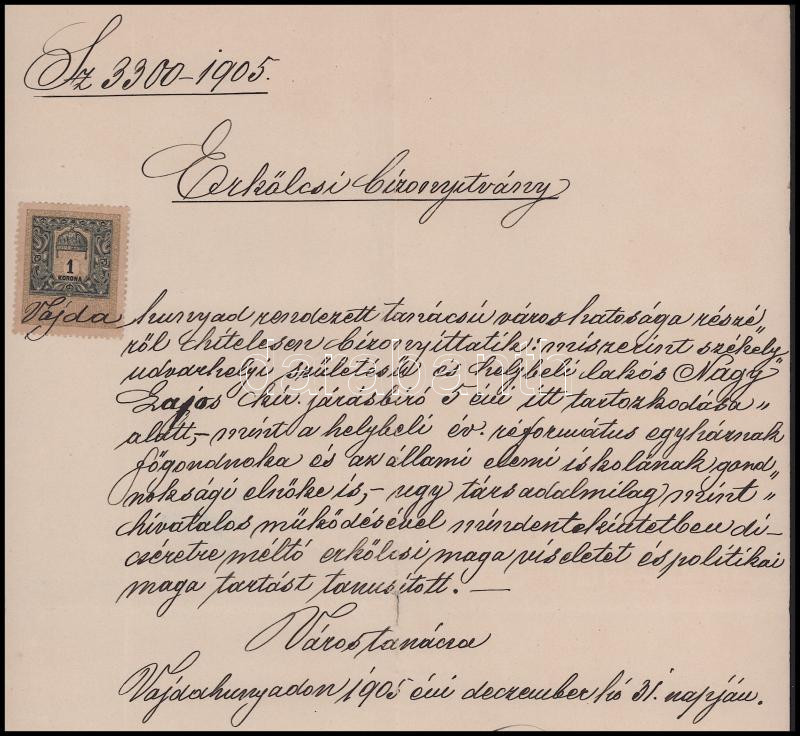 Sz 3300-1905.
Erkölcsi bizonyitvány
1
KORONA
Vajda hunyad rendezett tanácsú városhatósága részé„
ről hitelesen bizonyittatik: miszerint székely„
udvarhelyi születésű és helybeli lakós Nagy„
Lajos kir. járásbiró 5 évi itt tartozkodása„
alatt,- mint a helybeli év. református egyháznak
főgondnoka és az állami elemi iskolának gond„
noksági elnöke is,- ugy társadalmilag mint„
hivatalos működésével mindentekintetben di-
cséretre méltó erkölcsi maga viseletet és politikai
maga tartást tanusitott. —
Várostanácsa
Vajdahunyadon 1905 évi deczember hó 31. napján.
darabanth